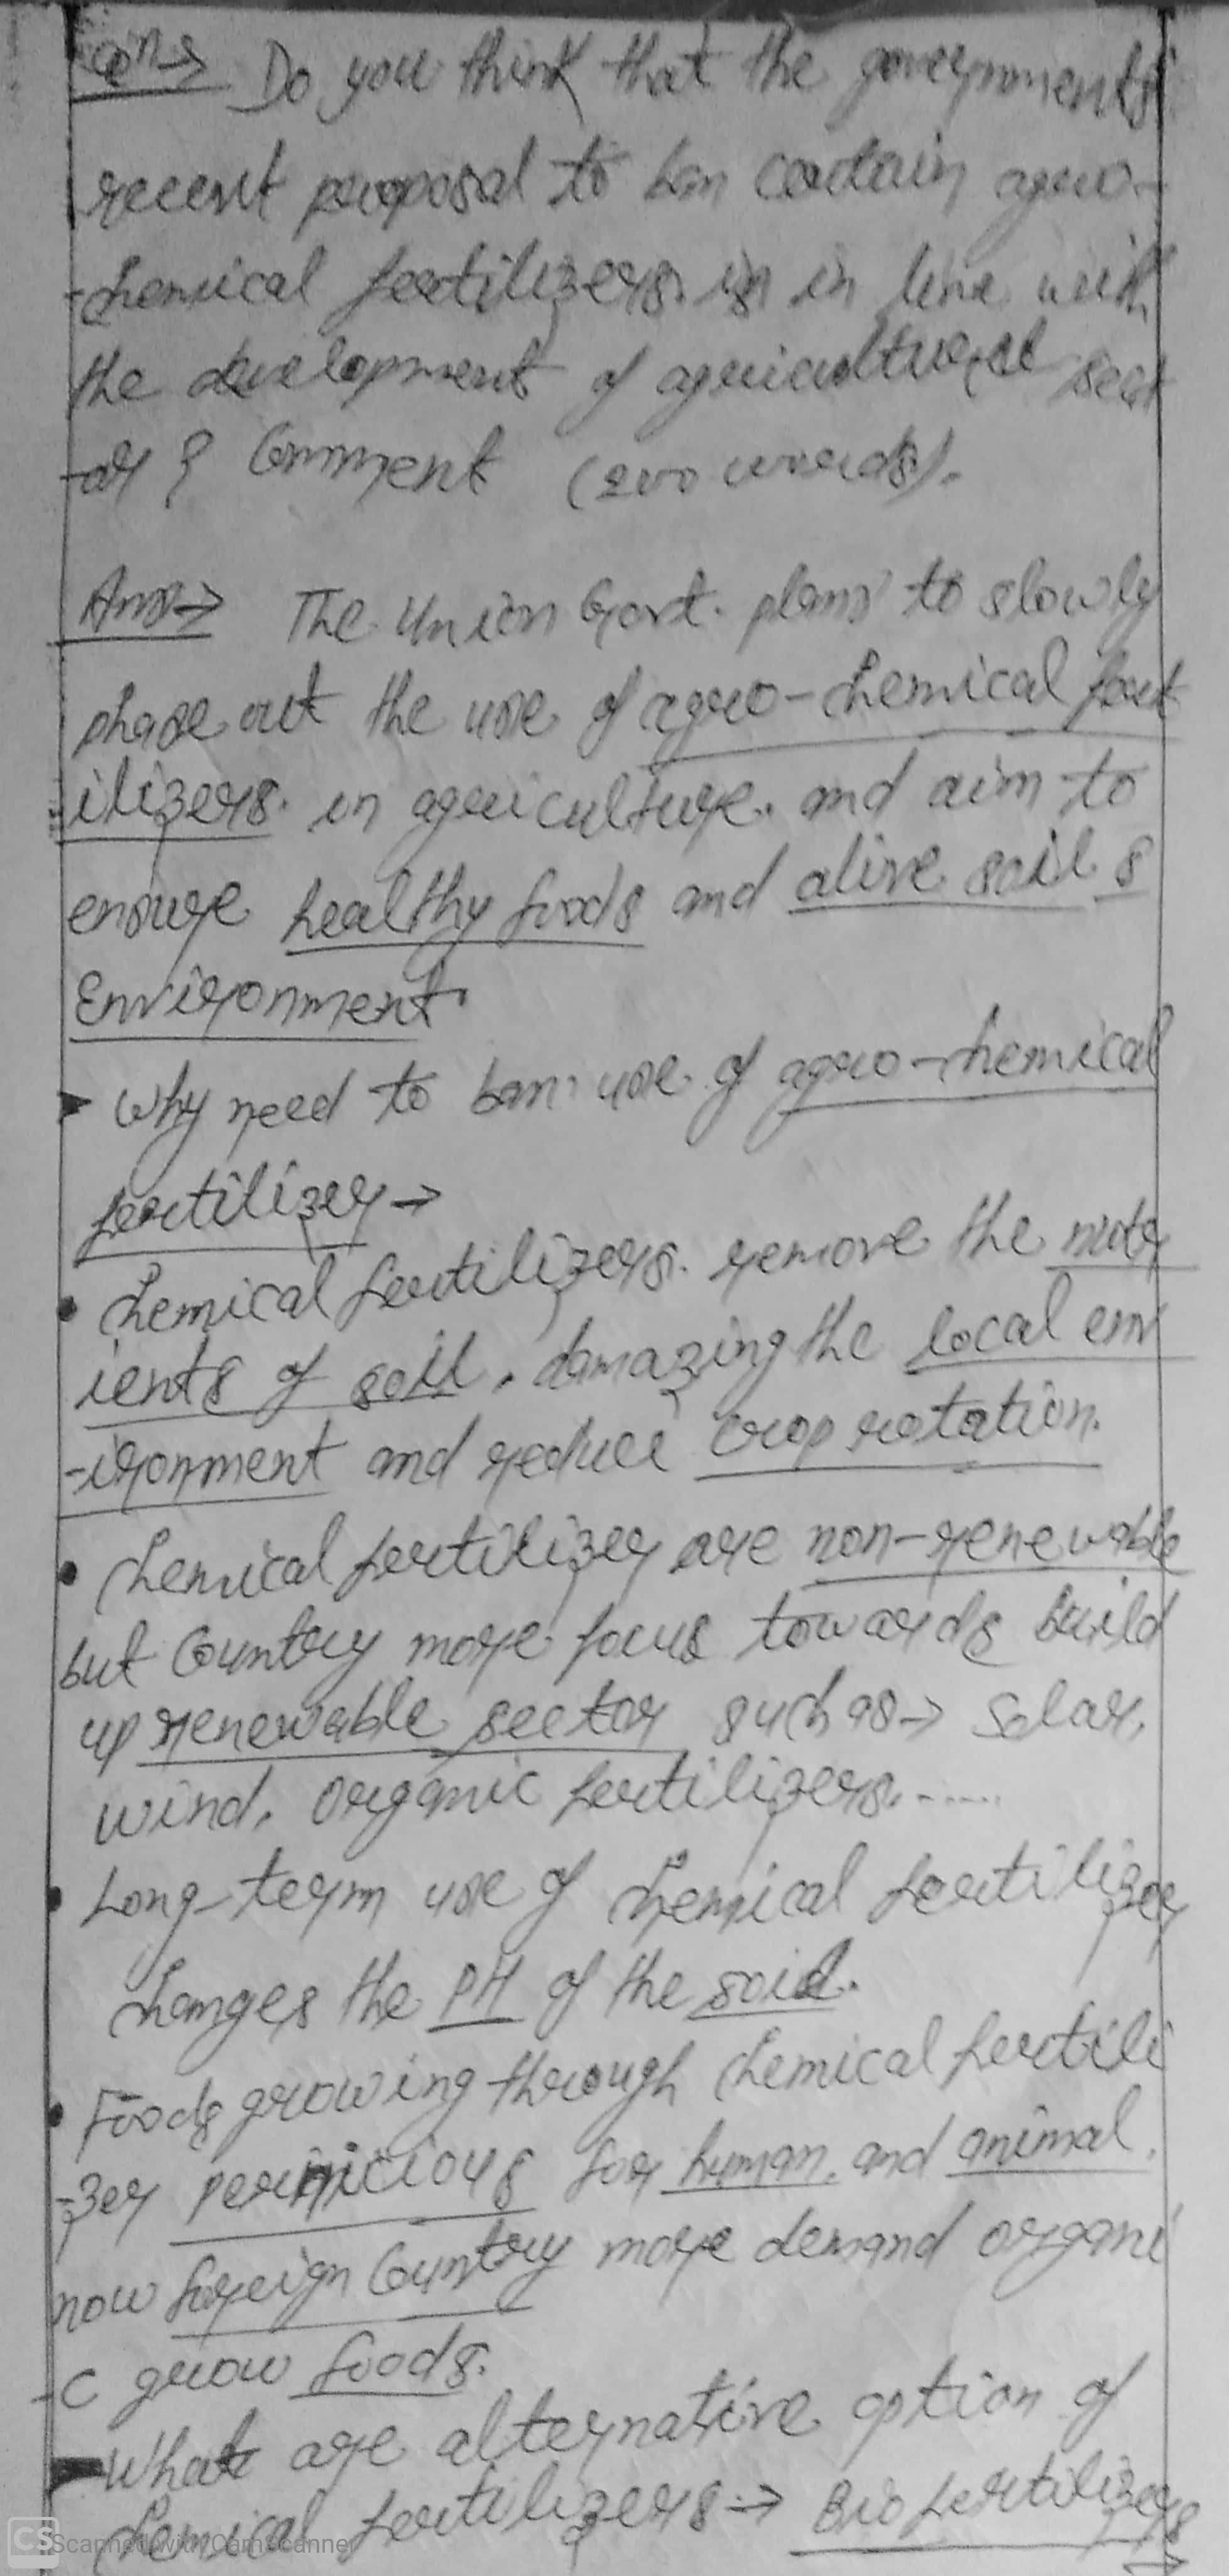 Qn→ Do you think that the governments
recent proposal to ban certain agro-
-chemical fertilizers is in line with
the development of agricultural sect
-or ? Comment (200 words).
Ans→ The Union Govt. plans to slowly
phase out the use of agro-chemical fert
ilizers in agriculture. and aim to
ensure healthy foods and alive soil &
Environment.
Why need to ban use of agro-chemical
fertilizer→
• Chemical fertilizers remove the nutr
ients of soil, damazing the local env
-ironment and reduce crop rotation.
• Chemical fertilizer are non-renewable
but Country more focus towards build
up renewable sector such as→ Solar,
wind, organic fertilizers......
• Long-term use of chemical fertilizer
changes the PH of the soil.
• Foods growing through chemical fertili
-zer pernicious for human and animal.
now foreign Country more demand organi
-c grow foods.
What are alternative option of
chemical fertilizers→ Biofertilizers
→
CS Scanned with CamScanner